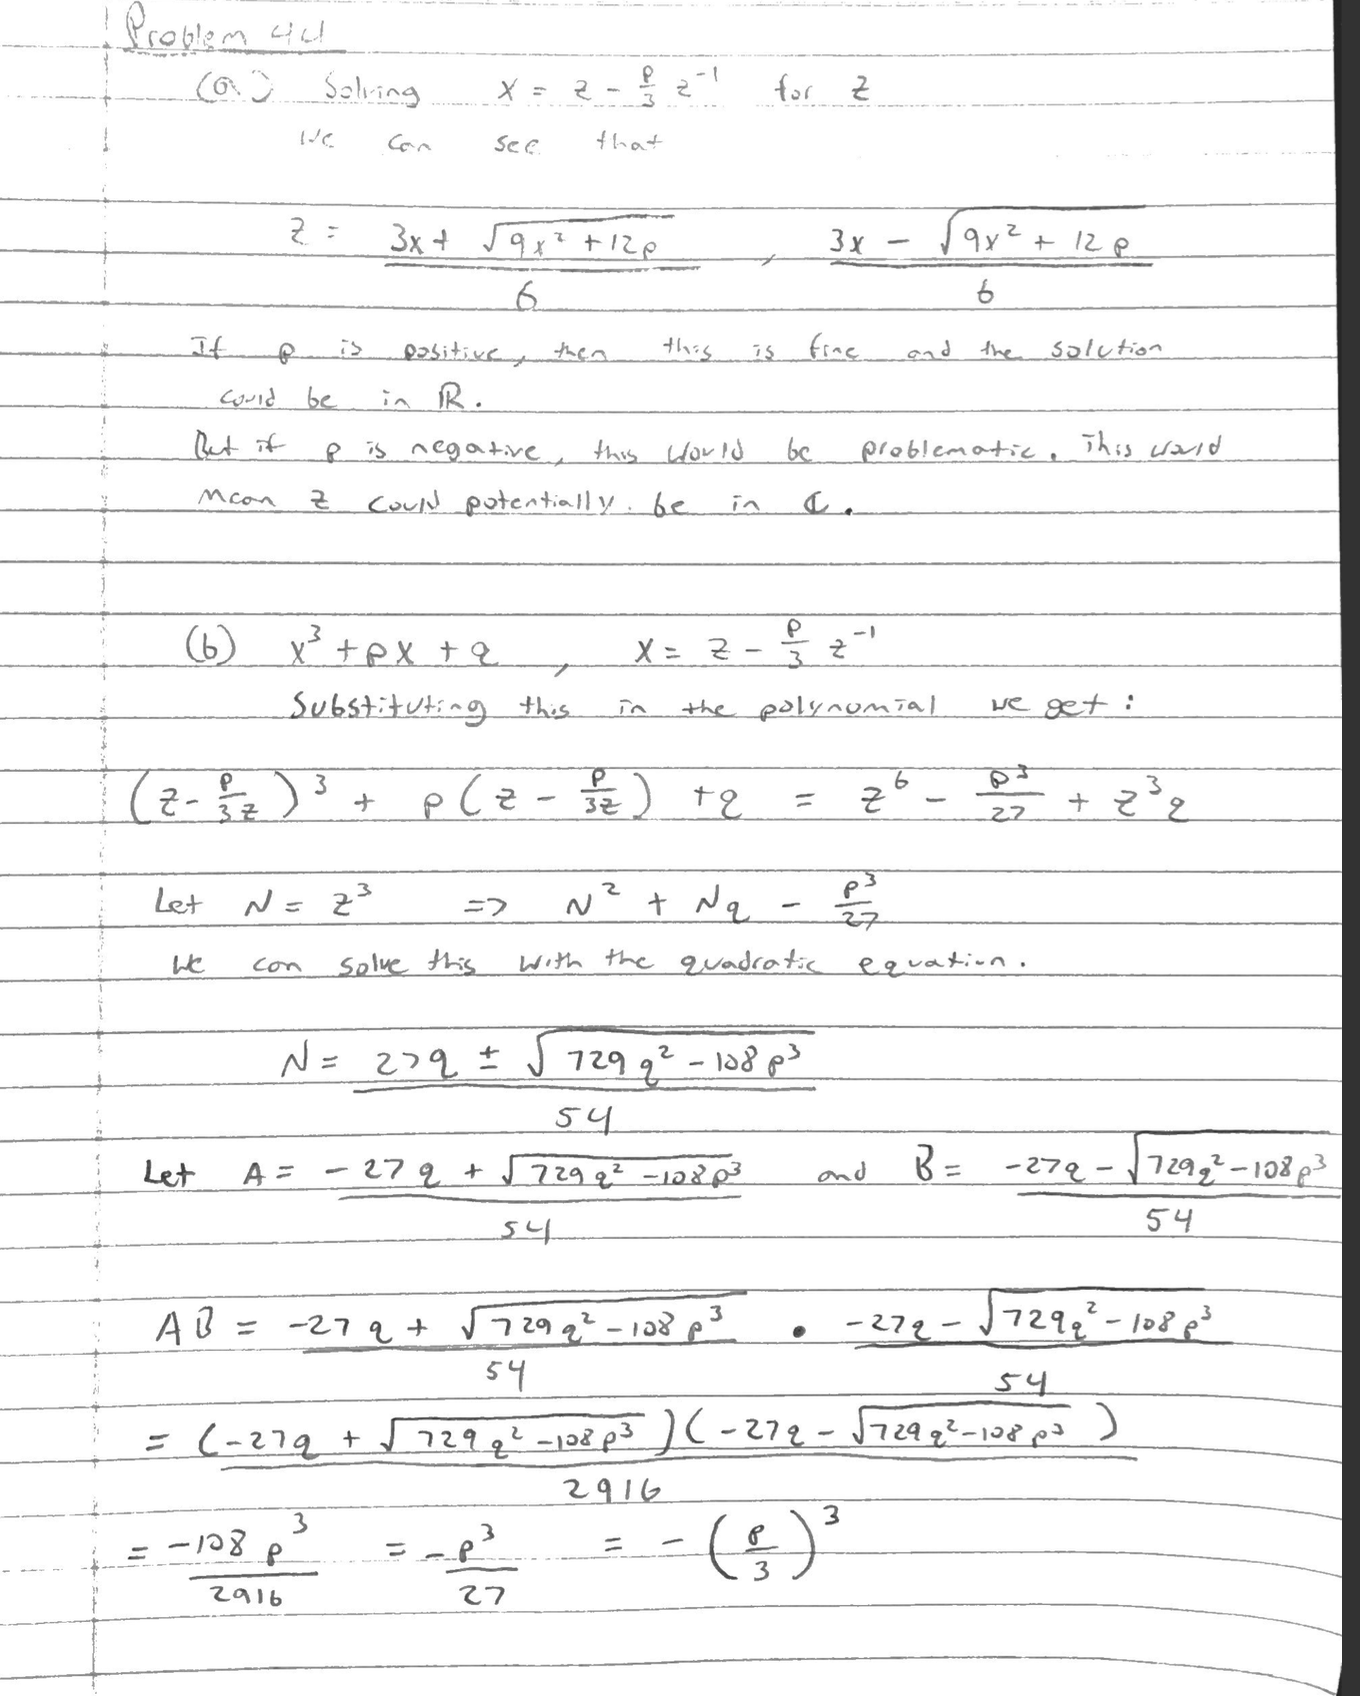 Problem 44
(a) Solving x = z - p/3 z⁻¹ for z
We can see that
z = (3x + √(9x² + 12p))/6 , (3x - √(9x² + 12p))/6
If p is positive, then this is fine and the solution
could be in ℝ.
But if p is negative, this would be problematic. This would
mean z could potentially be in ℂ.
(b) x³ + px + q , x = z - p/3 z⁻¹
Substituting this in the polynomial we get:
(z - p/3z)³ + p(z - p/3z) + q = z⁶ - p³/27 + z³q
Let N = z³ => N² + Nq - p³/27
We can solve this with the quadratic equation.
N = (27q ± √(729q² - 108p³))/54
Let A = (-27q + √(729q² - 108p³))/54 and B = (-27q - √(729q² - 108p³))/54
AB = (-27q + √(729q² - 108p³))/54 • (-27q - √(729q² - 108p³))/54
= (-27q + √(729q² - 108p³))(-27q - √(729q² - 108p³))/2916
= -108p³/2916 = -p³/27 = -(p/3)³